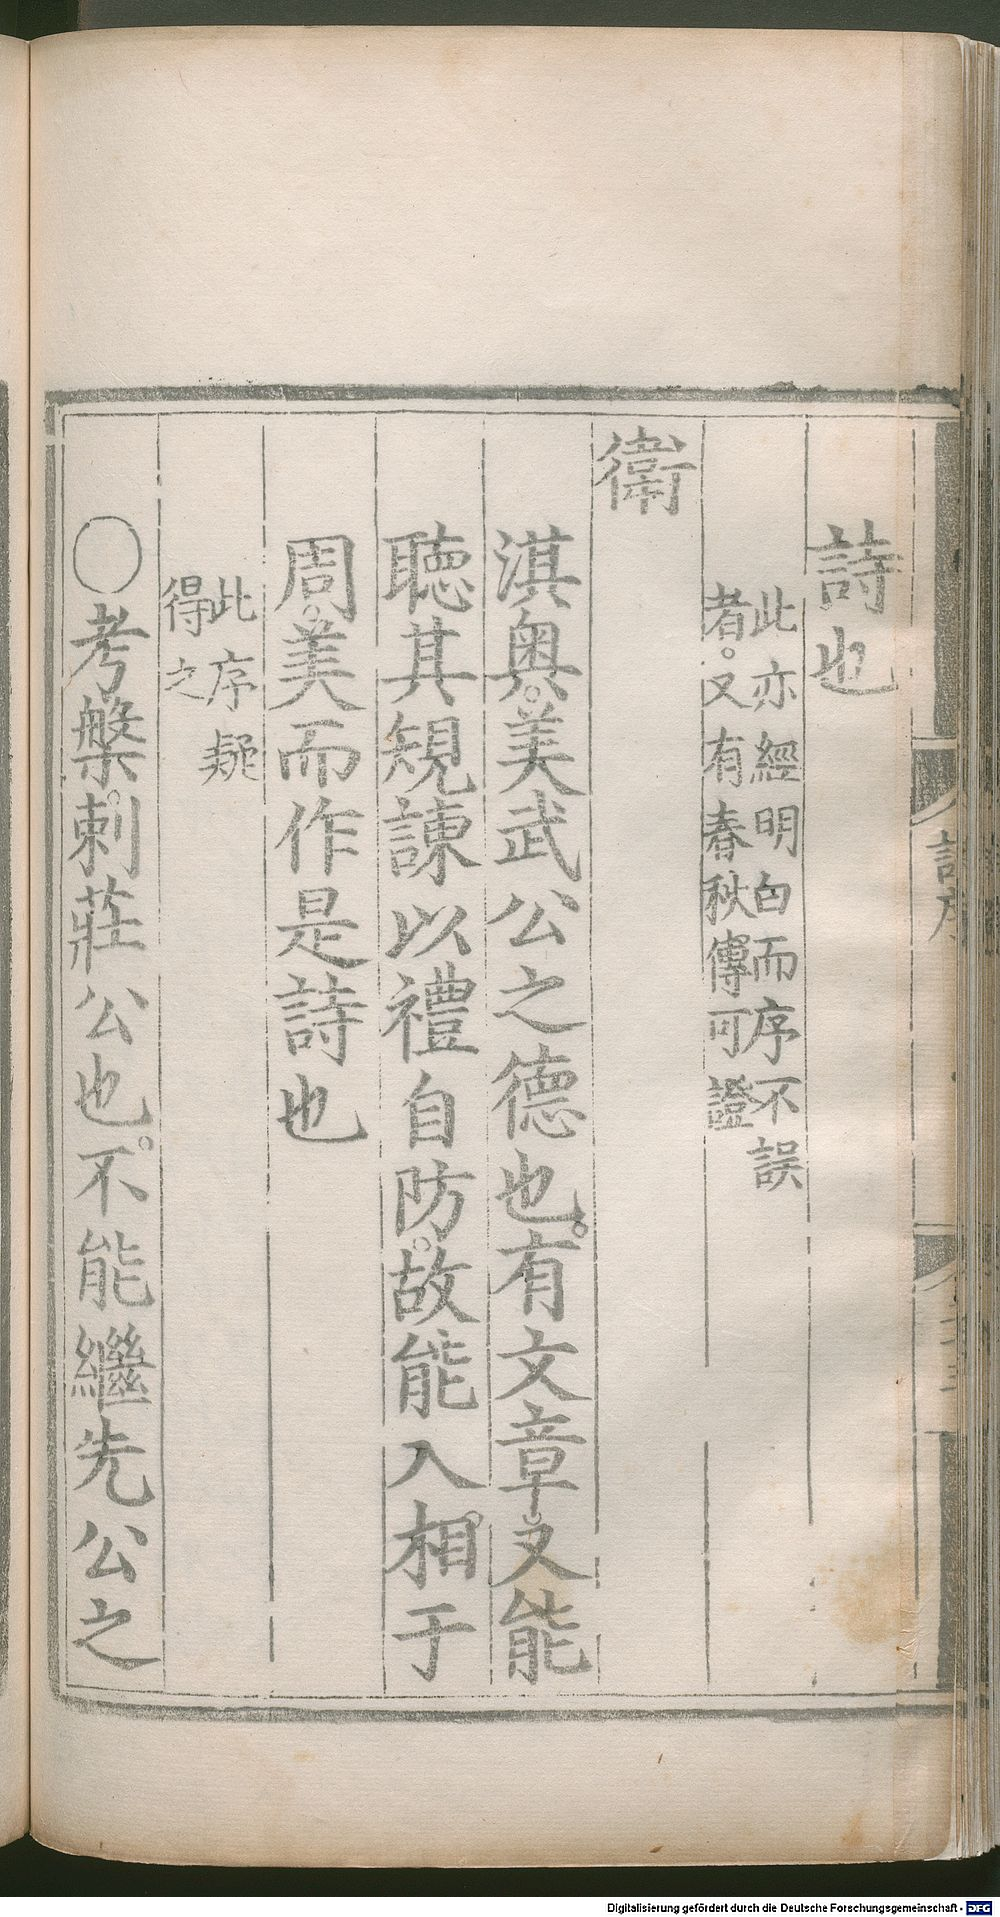 詩也
此亦經明白而序不誤
者。又有春秋傳可證
衛
淇奧。美武公之德也。有文章。又能
聽其規諫以禮自防。故能入相于
周。美而作是詩也
此序疑
得之
○考槃。刺莊公也。不能繼先公之
Digitalisierung gefördert durch die Deutsche Forschungsgemeinschaft - DFG